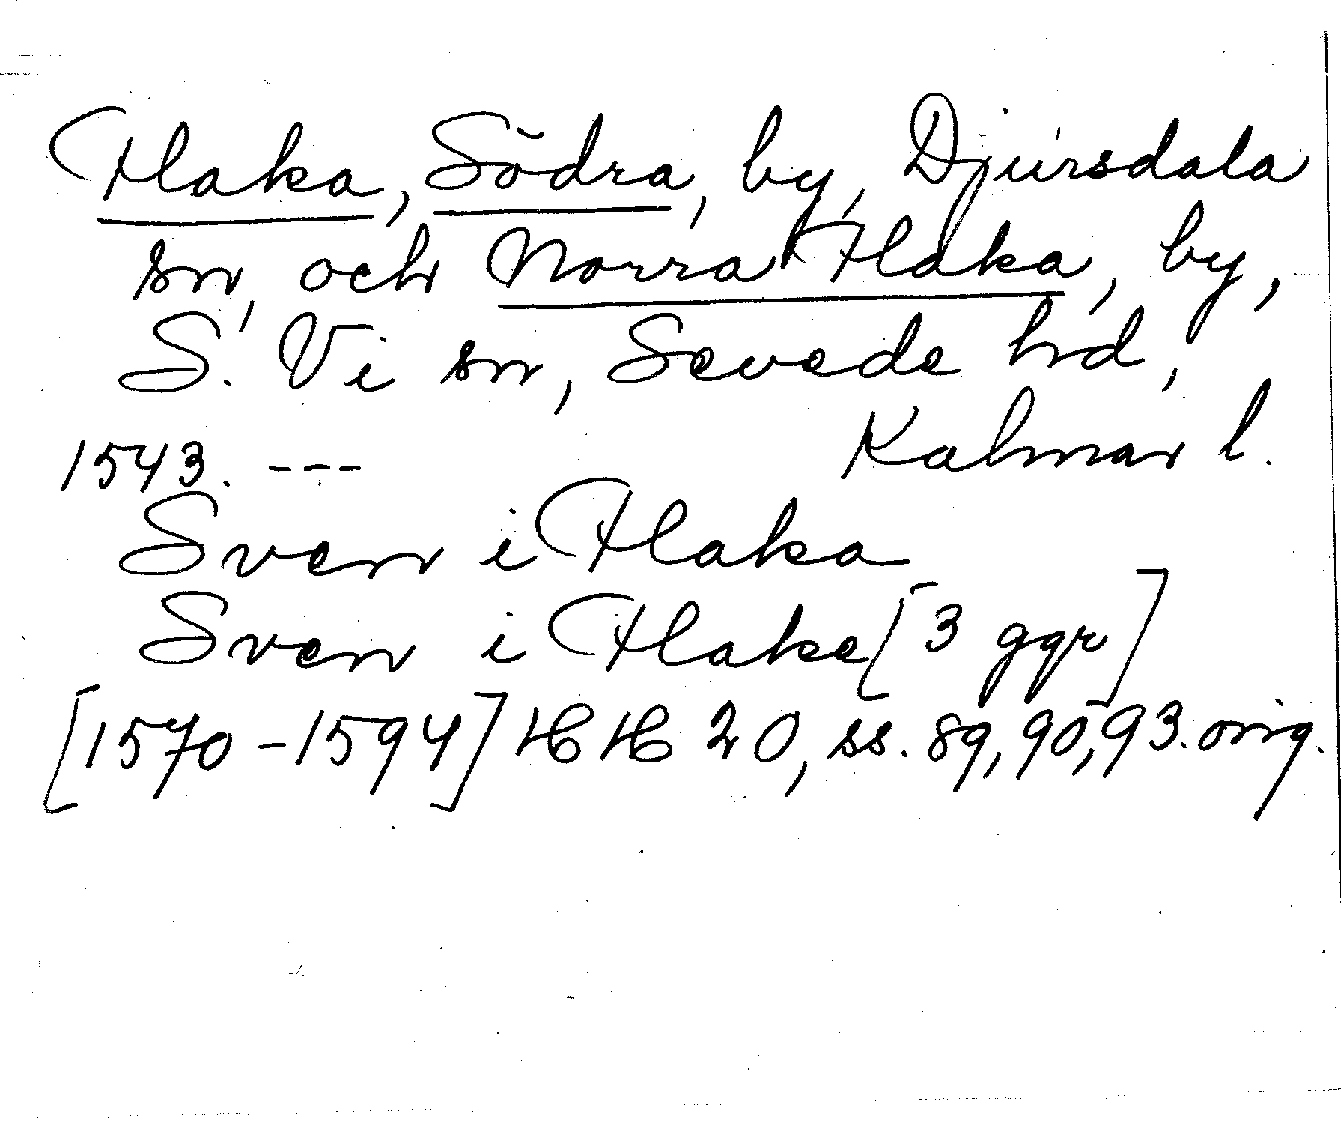 Flaka, Södra, by, Djursdala
sn, och Norra Flaka, by,
S. Vi sn, Sevede hd,
Kalmar l.
1543. ---
Sven i Flaka
Sven i Flake [3 ggr]
[1570-1594] HH 20, ss. 89, 90, 93. orig.